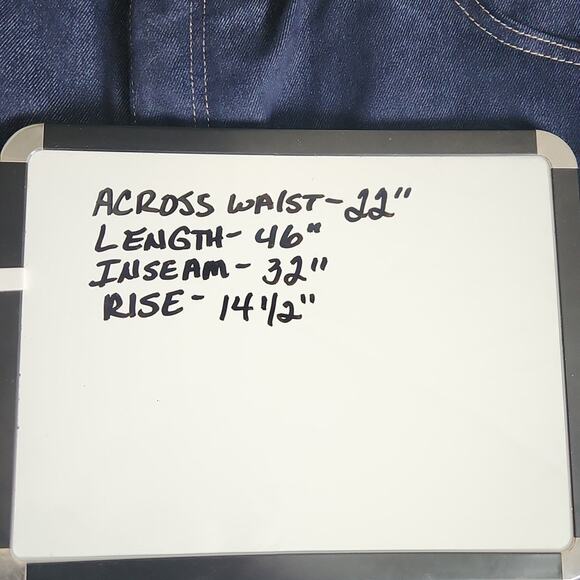 ACROSS WAIST- 22"
LENGTH- 46"
INSEAM- 32"
RISE- 14 1/2"